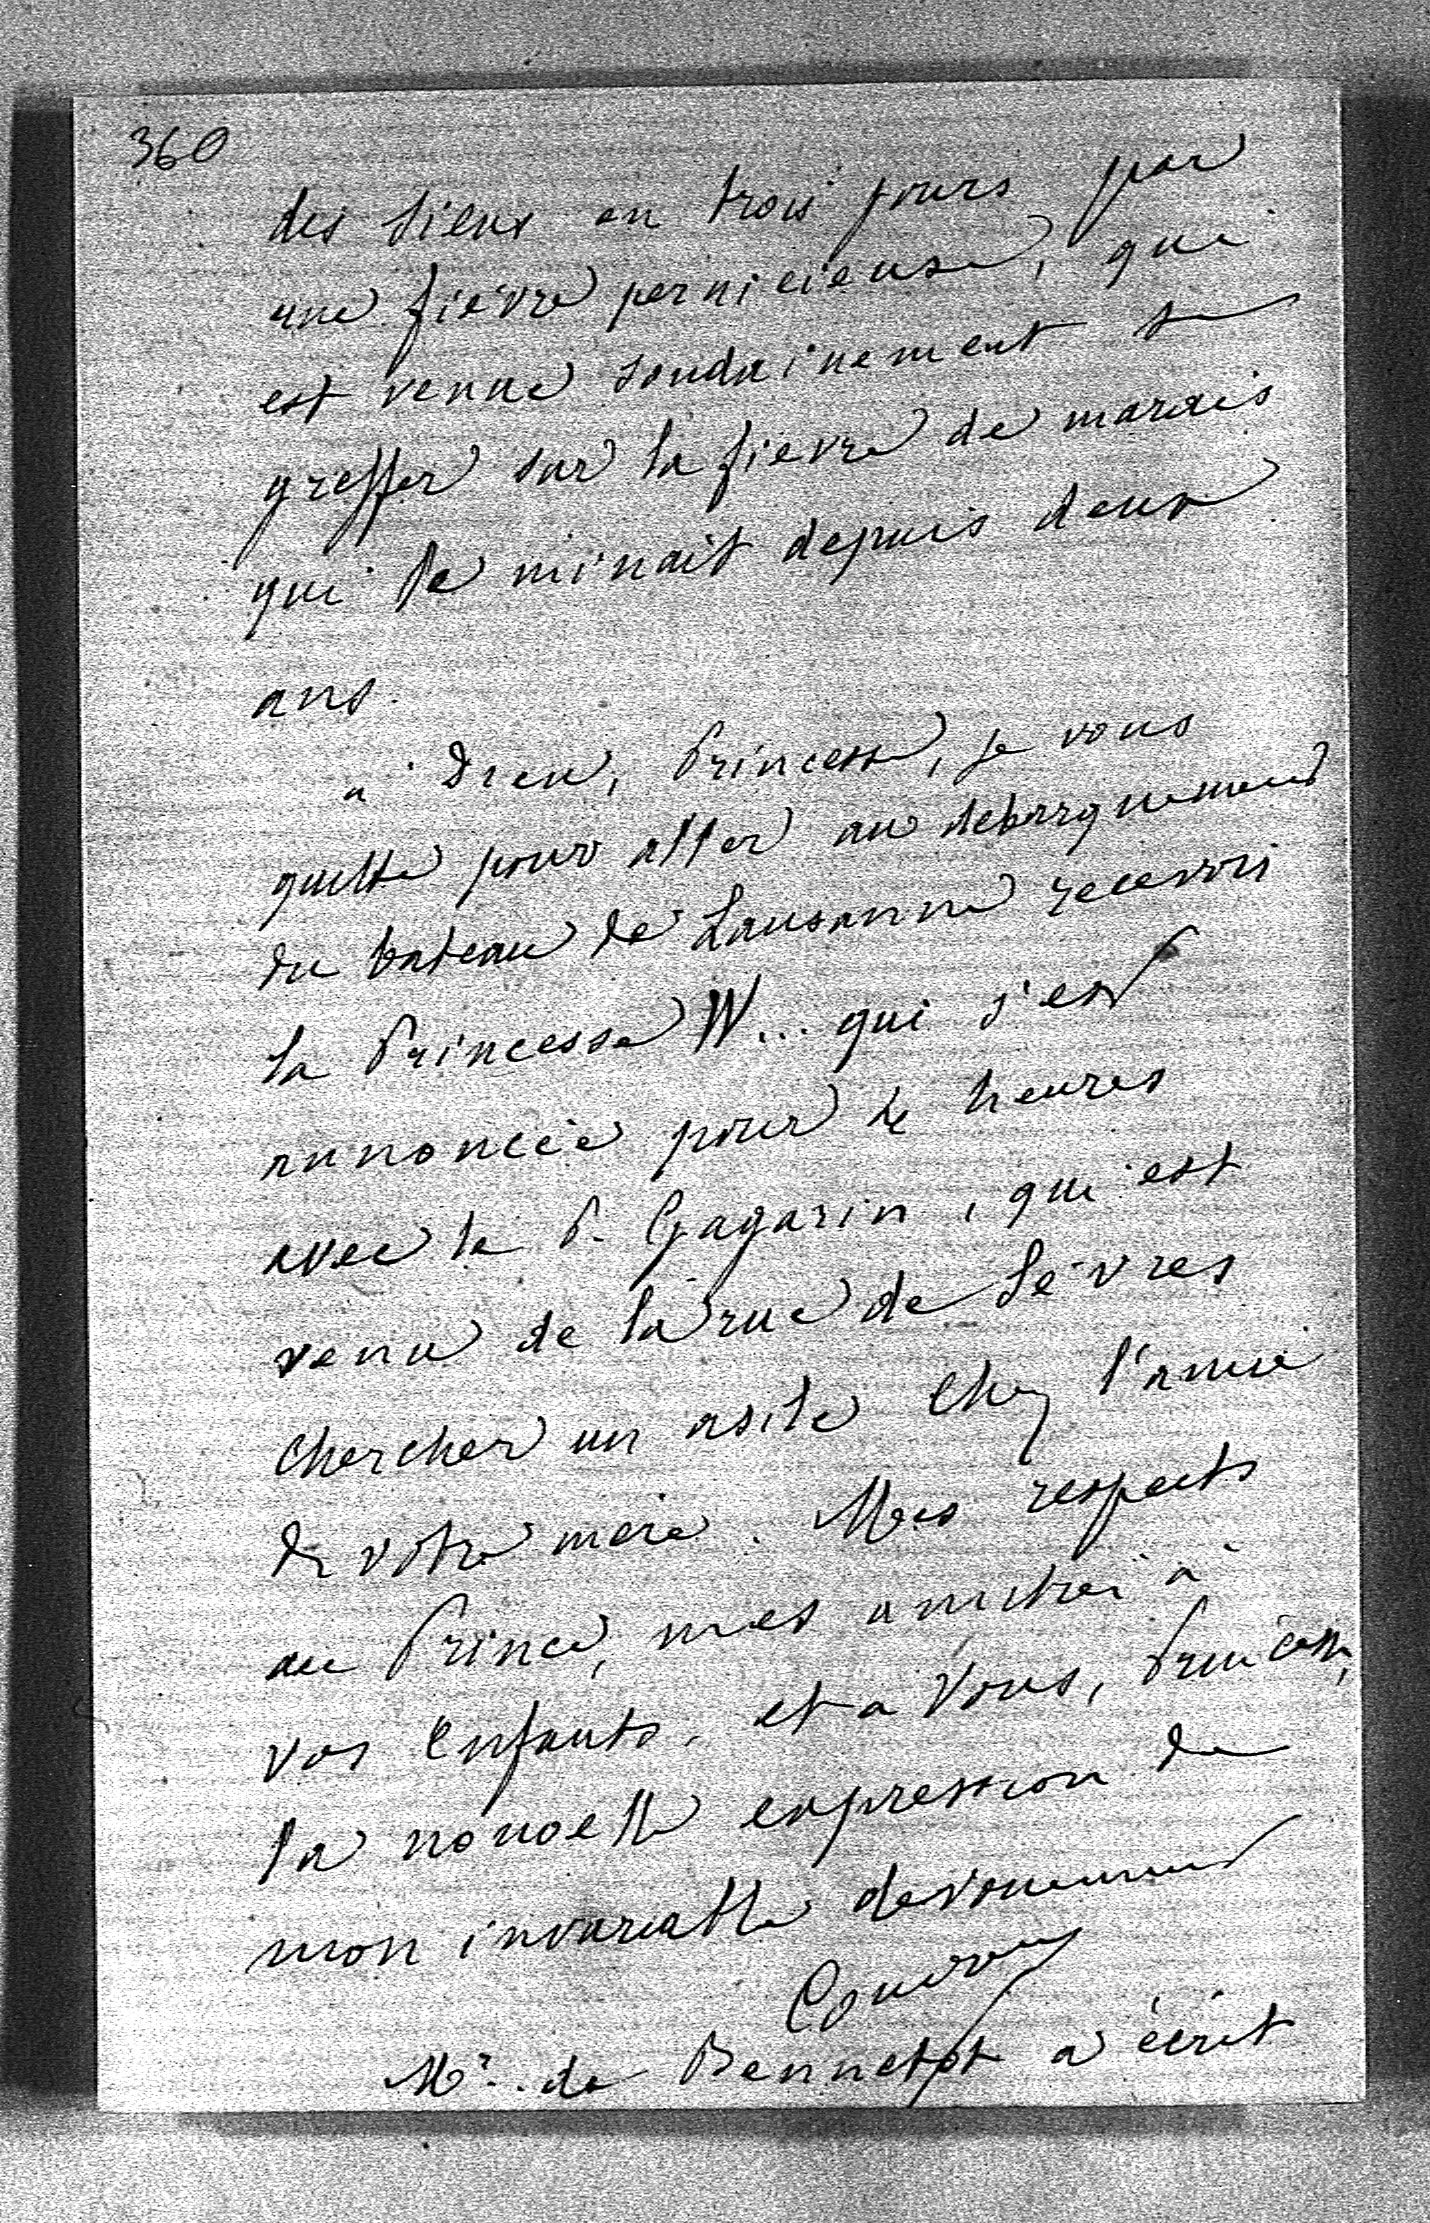 360
des siens en trois jours par
une fièvre pernicieuse, qui
est venue soudainement se
greffer sur la fievre de marais
qui le minait depuis deux
ans.
à Dieu, Princesse, je vous
quitte pour aller au debarquement
du bateau de Lausanne recevoir
la Princesse W... qui s'est
annoncée pour heures
avec le P. Gagarin, qui est
venu de la rue de Sèvres
chercher un asile chez l'amie
de votre mère. Mes respects
au Prince, mes amitiés à
vos enfants. et a vous, Princesse,
la nouvelle expression de
mon invariable devouement
Mr. de Bennetot a écrit